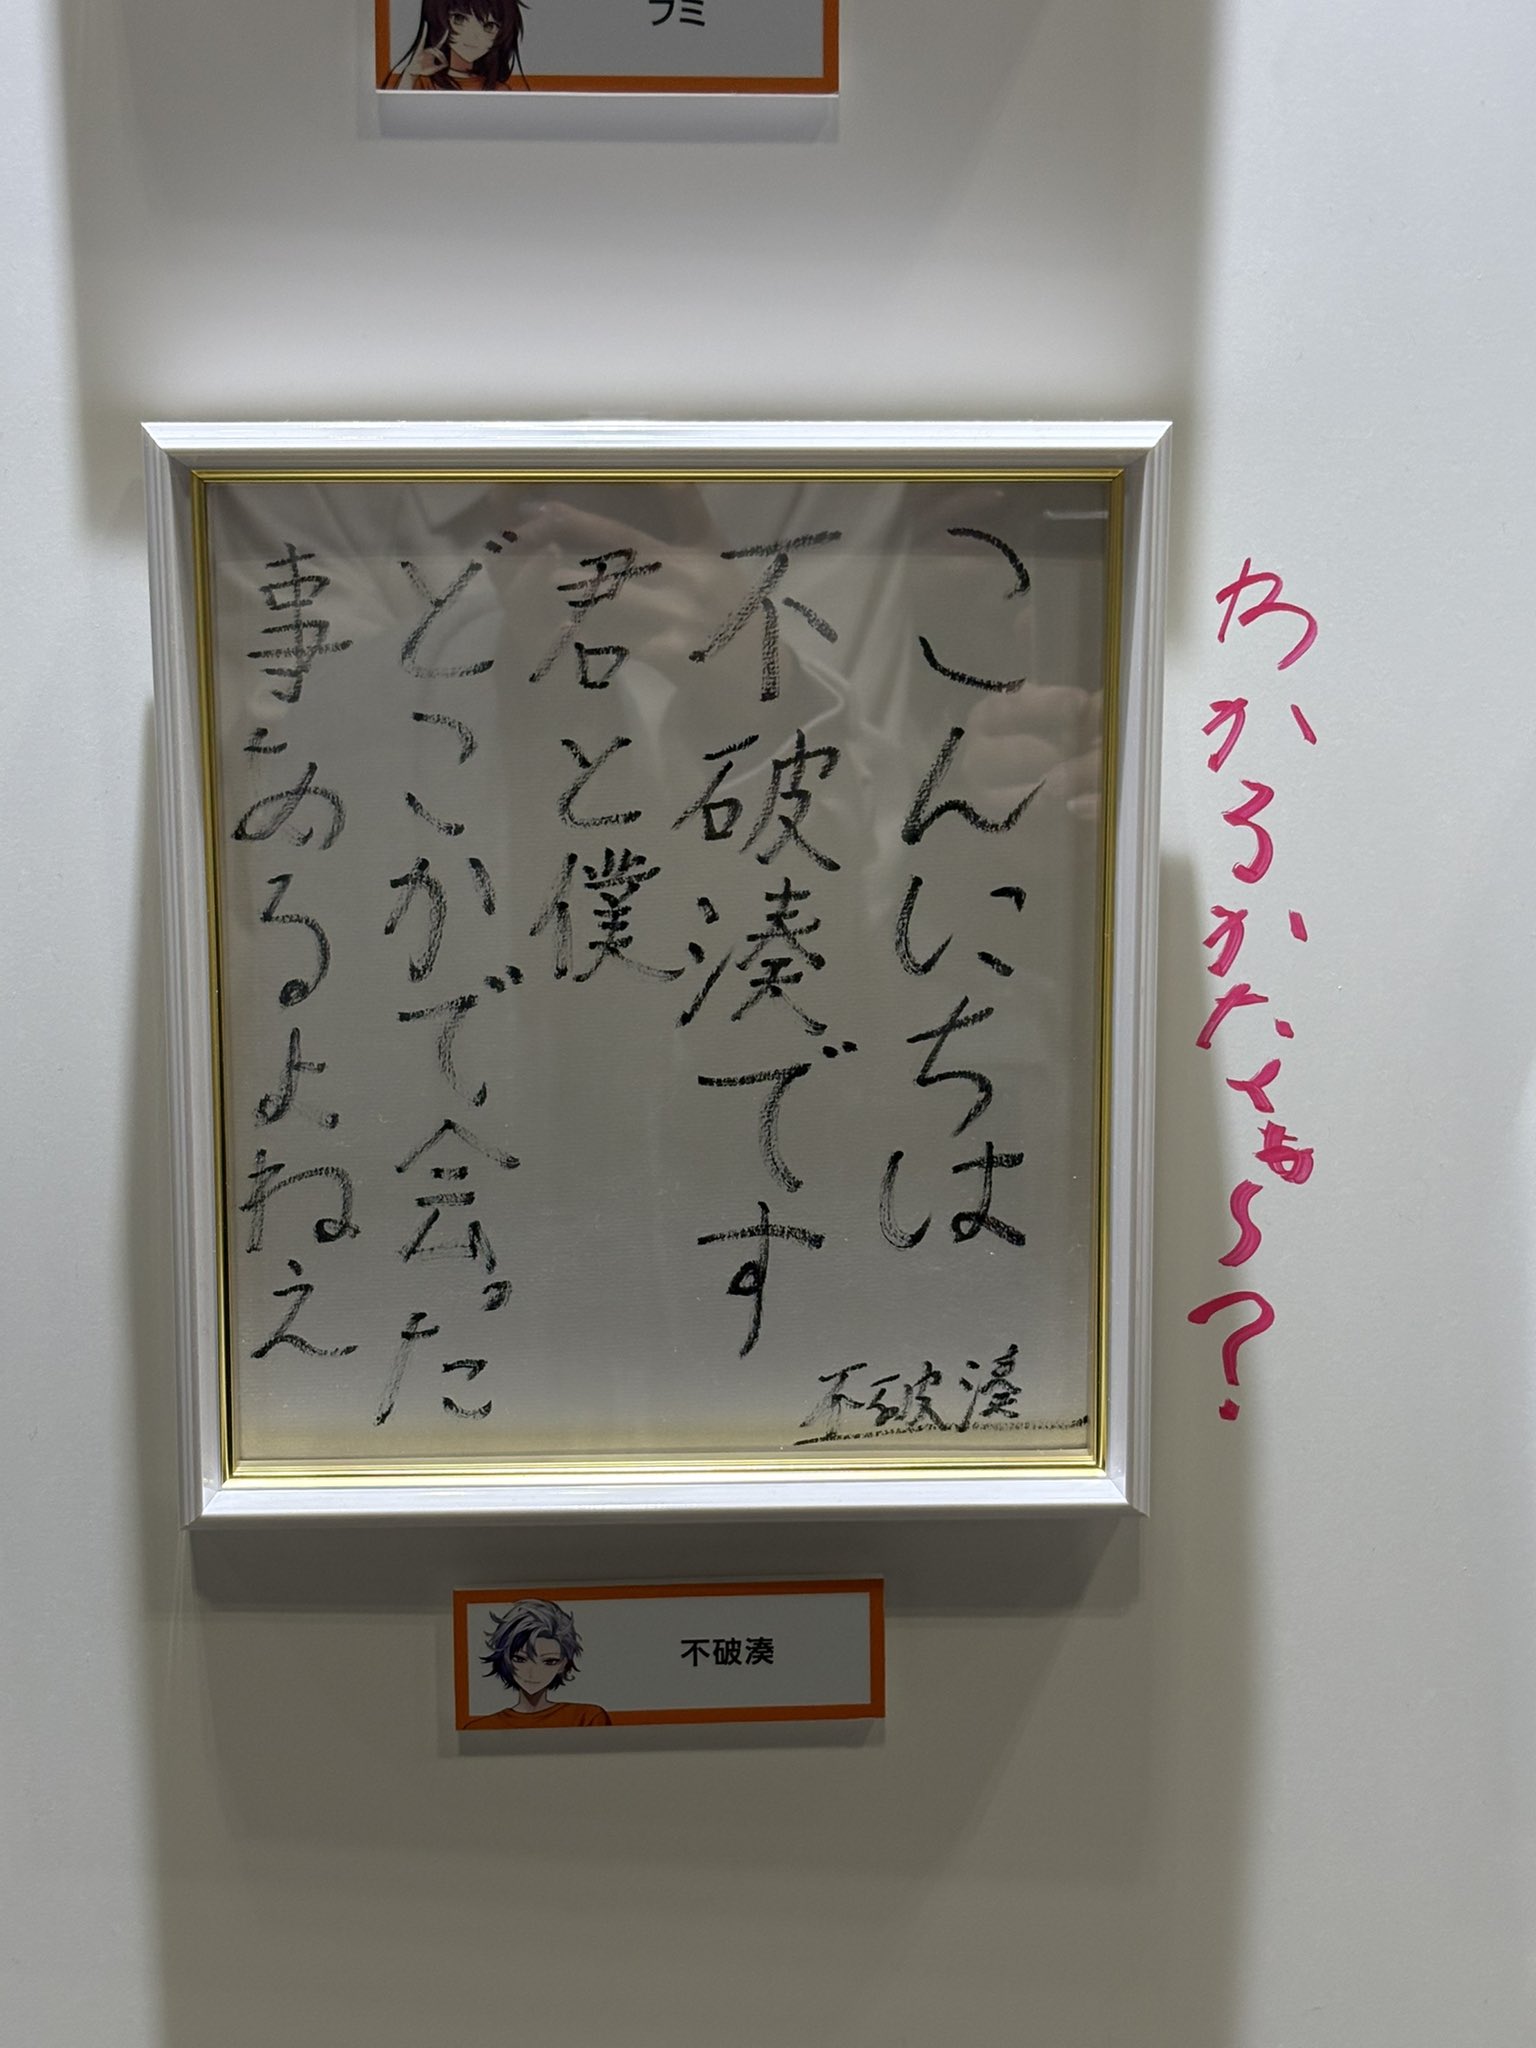 フミ
こんにちは
不破湊です
君と僕
どこかで会った
事あるよねぇ
不破湊
不破湊